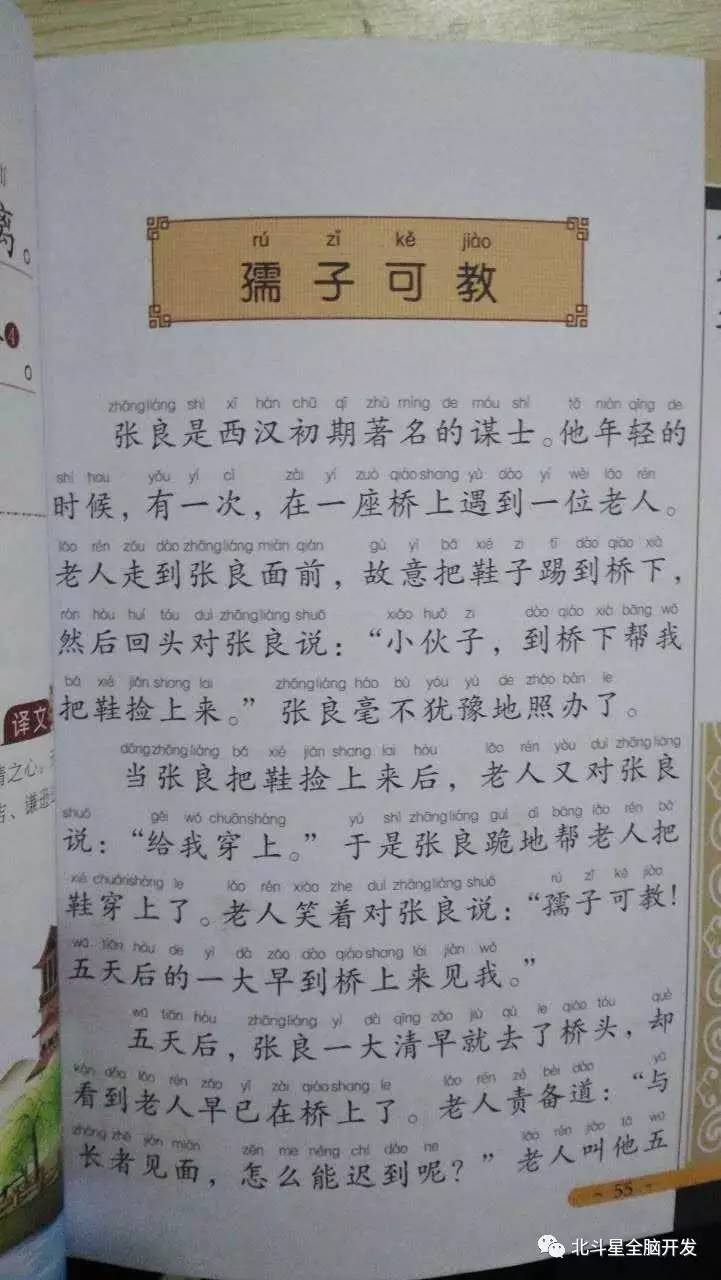 rú zǐ kě jiào
孺子可教
zhāng liáng shì xī hàn chū qī zhù míng de móu shì tā nián qīng de
张良是西汉初期著名的谋士。他年轻的
shí hou yǒu yí cì zài yí zuò qiáo shang yù dào yí wèi lǎo rén
时候，有一次，在一座桥上遇到一位老人。
lǎo rén zǒu dào zhāng liáng miàn qián gù yì bǎ xié zi tī dào qiáo xià
老人走到张良面前，故意把鞋子踢到桥下，
rán hòu huí tóu duì zhāng liáng shuō xiǎo huǒ zi dào qiáo xià bāng wǒ
然后回头对张良说：“小伙子，到桥下帮我
bǎ xié jiǎn shang lai zhāng liáng háo bù yóu yù de zhào bàn le
把鞋捡上来。”张良毫不犹豫地照办了。
dāng zhāng liáng bǎ xié jiǎn shang lai hòu lǎo rén yòu duì zhāng liáng
当张良把鞋捡上来后，老人又对张良
shuō gěi wǒ chuān shàng yú shì zhāng liáng guì dì bāng lǎo rén bǎ
说：“给我穿上。”于是张良跪地帮老人把
xié chuān shàng le lǎo rén xiào zhe duì zhāng liáng shuō rú zǐ kě jiào
鞋穿上了。老人笑着对张良说：“孺子可教！
wǔ tiān hòu de yí dà zǎo dào qiáo shang lái jiàn wǒ
五天后的一大早到桥上来见我。”
wǔ tiān hòu zhāng liáng yí dà qīng zǎo jiù qù le qiáo tóu què
五天后，张良一大清早就去了桥头，却
kàn dào lǎo rén zǎo yǐ zài qiáo shang le lǎo rén zé bèi dào yǔ
看到老人早已在桥上了。老人责备道：“与
zhǎng zhě jiàn miàn zěn me néng chí dào ne lǎo rén jiào tā wǔ
长者见面，怎么能迟到呢？”老人叫他五
55
译文
北斗星全脑开发